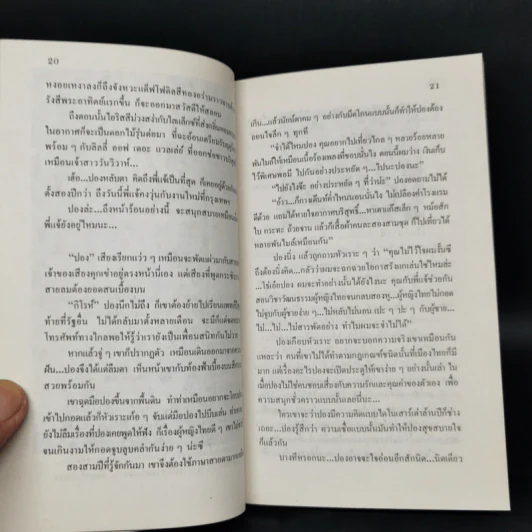 20
หงอยเหงาลงก็ถึงจังหวะแด๊ฟโฟดิลสีทองอร่ามราวจะเต้น
รังสีพระอาทิตย์แรกขึ้น ก็จะออกมาสวัสดีให้สลอน
ถึงตอนนั้นไอริสสีม่วงสล้างกับไลแล็กซ์ที่ส่งกลิ่นหอม
ในอากาศก็จะเป็นดอกไม้รุ่นต่อมา ที่จะอ้อนเตรียมรับฤดูร้อน
พร้อม ๆ กับลิลลี่ ออฟ เดอะ แวลเล่ย์ ที่ออกช่อขาวบริสุทธิ์
เหมือนเจ้าสาววันวิวาห์...
เฮ้อ...ปองหลับตา คิดถึงพี่แจ้เป็นที่สุด ก็เคยอยู่ด้วยกัน
ตั้งสองปีกว่า ถึงวันนี้พี่แจ้คงวุ่นกับงานใหม่ที่กรุงเทพฯ
ปองล่ะ...ถึงหน้าร้อนอย่างนี้ จะสนุกสบายเหมือน
พี่แจ้ยังอยู่ไหมนะ...
“ปอง” เสียงเรียกแว่ว ๆ เหมือนจะพัดแผ่วมากับสาย
เจ้าของเสียงคุกเข่าอยู่ตรงหน้านี่เอง แต่เสียงที่พูดกระซิบ
สายลมต้องยอดสนเบื้องบน
“กิโรห์” ปองนึกไม่ถึง ก็เขาต้องย้ายไปเรียน
ท้ายที่รัฐอื่น ไม่ได้กลับมาตั้งหลายเดือน จะมีก็แต่
โทรศัพท์ทางไกลพอให้รู้ว่าเรายังเป็นเพื่อนสนิทกันไม่
หากแล้วจู่ ๆ เขาก็ปรากฏตัว เหมือนเดินออกมาจาก
ฝัน...ปองจึงได้แต่ลืมตา เห็นหน้าเขากับท้องฟ้าเบื้องบน
สวยพร้อมกัน
เขาฉุดมือปองขึ้นจากพื้นดิน ทำท่าเหมือนอยากจะโอบ
เข้าไปกอดแล้วก็หัวเราะเก้อ ๆ จับแต่มือปองไปบีบเล่น
ยังไม่ลืมเรื่องที่ปองเคยพูดให้ฟัง ก็เรื่องผู้หญิงไทยดี ๆ เขาไม่
จนเกินงามให้กอดจูบลูบคลำกันง่าย ๆ น่ะซี
สองสามปีที่รู้จักกันมา เขาจึงต้องใช้ภาษาสายตามา
21
เกิน...แล้วนัยน์ตาคม ๆ อย่างกับมีดโกนแบบนั้นก็ทำให้ปองต้อง
ถอนใจลึก ๆ ทุกที
“จำได้ไหมปอง คุณอยากไปเที่ยวไกล ๆ หลายร้อยหลาย
พันไมล์ให้เหมือนเนื้อร้องเพลงที่ชอบนั่นไง ตอนนี้ผมว่าง เงินเก็บ
ไว้พิเศษพอมี ไปกันอย่างประหยัด ๆ...ไปนะปองนะ”
“ไปยังไงจ๊ะ อย่างประหยัด ๆ ที่ว่าน่ะ” ปองอดถามไม่ได้
“อ้าว...ก็กางเต็นท์ให้ปองนอนนั่นไง ไม่เปลืองค่าโรงแรม
ดีด้วย แถมได้หายใจอากาศบริสุทธิ์...หาเตาแก๊สเล็ก ๆ หม้อสัก
ใบ กระทะ ถ้วยจาน แล้วก็เสื้อผ้าคนละสองสามชุด ก็ไปเที่ยวได้
หลายพันไมล์เหมือนกัน”
ปองนิ่ง แล้วถูกถามหัวเราะ ๆ ว่า “คุณไม่ไว้ใจผมงั้นซี
ปองถึงนิ่งคิด...กลัวว่าผมจะฉกฉวยโอกาสรังแกเล่นใช่ไหมล่ะ
...โธ่เอ๊ยปอง ผมจะทำอย่างนั้นได้ยังไงนะ คุณกับพี่แจ้ช่วยกัน
สอนวิชาวัฒนธรรมผู้หญิงไทยจนกลบสองหู...ผู้หญิงไทยไม่กอด
ไม่จูบกับผู้ชายง่าย ๆ...ไม่หลับไม่นอน เปะ ๆ ปะ ๆ กับผู้ชาย
...ไม่...ไม่...ไม่สารพัดอย่าง ทำไมผมจะจำไม่ได้”
ปองเกือบหัวเราะ อยากจะบอกความจริงเขาเหมือนกัน
แหละว่า คนที่เขาไม่ได้ทำตามกฎเกณฑ์ชนิดนั้นที่เมืองไทยก็มี
มาก แต่เรื่องอะไรปองจะเปิดประตูให้เขาง่าย ๆ อย่างนั้นเล่า ใน
เมื่อปองไม่ใช่คนชอบเสี่ยงกับความรักและคุณค่าของตัวเอง เพื่อ
ความสนุกชั่วคราวแบบนั้นเลยนี่นะ...
ใครเขาจะว่าปองมีความคิดแบบไดโนเสาร์เต่าล้านปีก็ช่าง
เถอะ...ปองรู้สึกว่า ความเชื่อแบบนั้นมันทำให้ปองสุขสบายใจ
ก็แล้วกัน
บางทีหรอกนะ...ปองอาจจะใจอ่อนอีกสักนิด...นิดเดียว